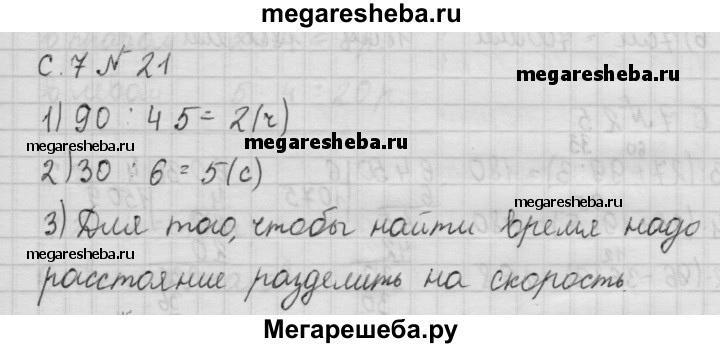 megaresheba.ru
С. 7 № 21
megaresheba.ru
1) 90 : 45 = 2(ч)
megaresheba.ru
megaresheba.ru
2) 30 : 6 = 5(с)
megaresheba.ru
3) Для того, чтобы найти время надо
megaresheba.ru
megaresheba.ru
расстояние разделить на скорость.
Мегарешеба.ру